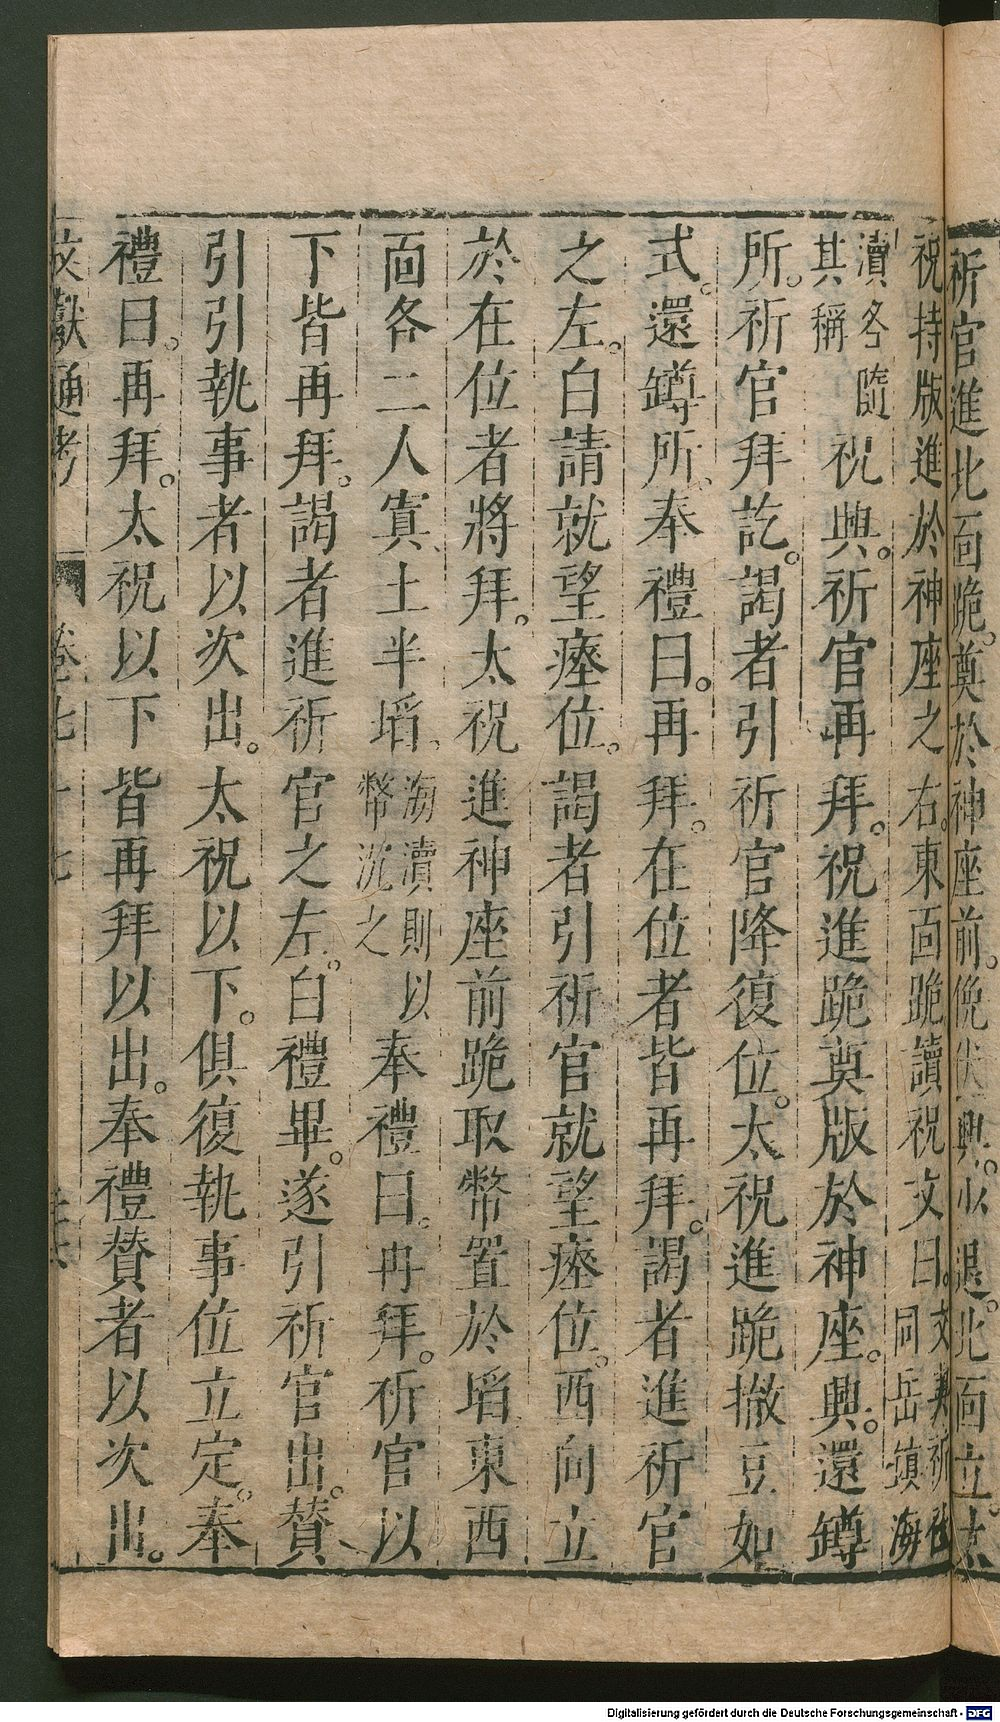 祈官進北面跪。奠於神座前。俛伏興。少退。北面立。太
祝持版進於神座之右。東面跪讀祝文曰。文與祈社同岳鎮海
瀆各隨其稱祝興。祈官再拜。祝進跪奠版於神座。興。還罇
所。祈官拜訖。謁者引祈官降復位。太祝進跪撤豆如
式。還罇所。奉禮曰。再拜。在位者皆再拜。謁者進祈官
之左。白請就望瘞位。謁者引祈官就望瘞位。西向立
於在位者將拜。太祝進神座前跪取幣置於埳東西
面各二人寘土半埳。海瀆則以幣沈之奉禮曰。再拜。祈官以
下皆再拜。謁者進祈官之左。白禮畢。遂引祈官出。贊
引引執事者以次出。太祝以下。俱復執事位立定。奉
禮曰。再拜。太祝以下皆再拜以出。奉禮贊者以次出。
文獻通考 卷七十七
Digitalisierung gefördert durch die Deutsche Forschungsgemeinschaft - DFG